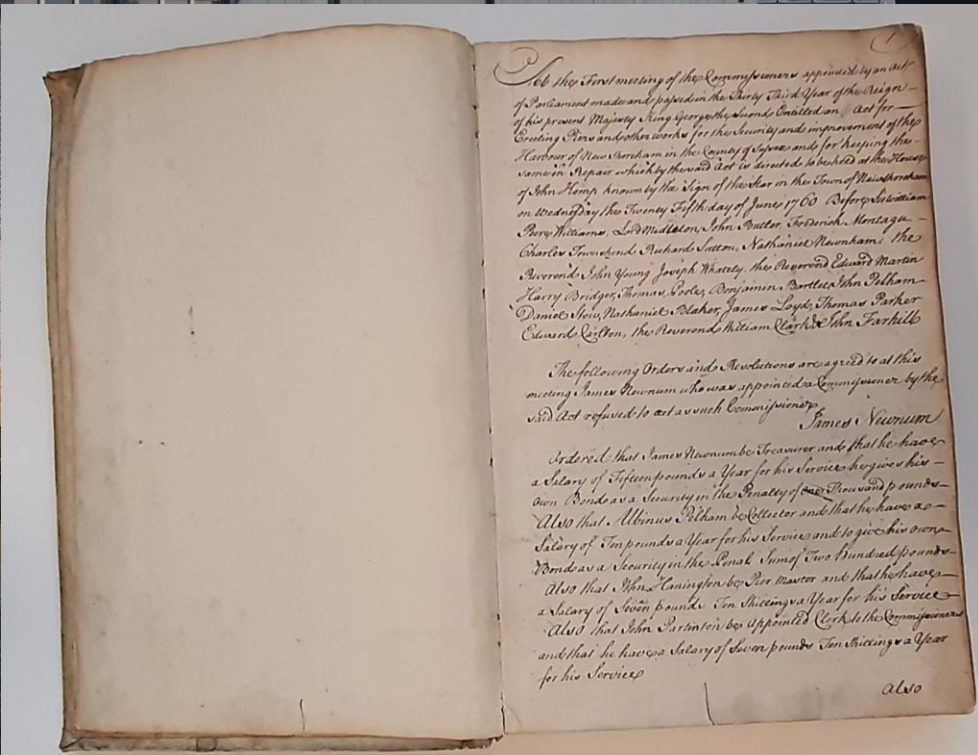 1
At the First meeting of the Commissioners appointed by an Act
of Parliament made and passed in the Thirty Third Year of the Reign
of his present Majesty King George the Second Entitled an Act for
Erecting Piers and other works for the Security and improvement of the
Harbour of New Shoreham in the County of Sussex and for keeping the
same in Repair which by the said Act is directed to be held at the House
of John Hemp known by the Sign of the Star in the Town of New Shoreham
on Wednesday the Twenty Fifth day of June 1760 Before Sir William
Peere Williams, Lord Midleton, John Butler, Frederick Montagu
Charles Townshend Richard Sutton, Nathaniel Newnham, the
Reverend John Young Joseph Whately, the Reverend Edward Martin
Harry Bridger, Thomas Poole, Benjamin Bartlet, John Pelham
Daniel Stow, Nathaniel Blaker, James Loyd, Thomas Parker
Edward Carlton, the Reverend William Clark & John Farhill
The following Orders and Resolutions are agreed to at this
meeting James Newnum who was appointed a Commissioner by the
said Act refused to act as such Commissioner
James Newnum
Ordered that James Newnum be Treasurer and that he have
a Salary of Fifteen pounds a Year for his Service he gives his
own Bond as a Security in the Penalty of one Thousand pounds
Also that Albinus Pelham be Collector and that he have a
Salary of Ten pounds a Year for his Service and to give his own
Bond as a Security in the Penal Sum of Two hundred pounds
Also that John Hanington be Pier Master and that he have
a Salary of Seven pounds Ten Shillings a Year for his Service
Also that John Partinton be appointed Clerk to the Commissioners
and that he have a Salary of Seven pounds Ten Shillings a Year
for his Service
also